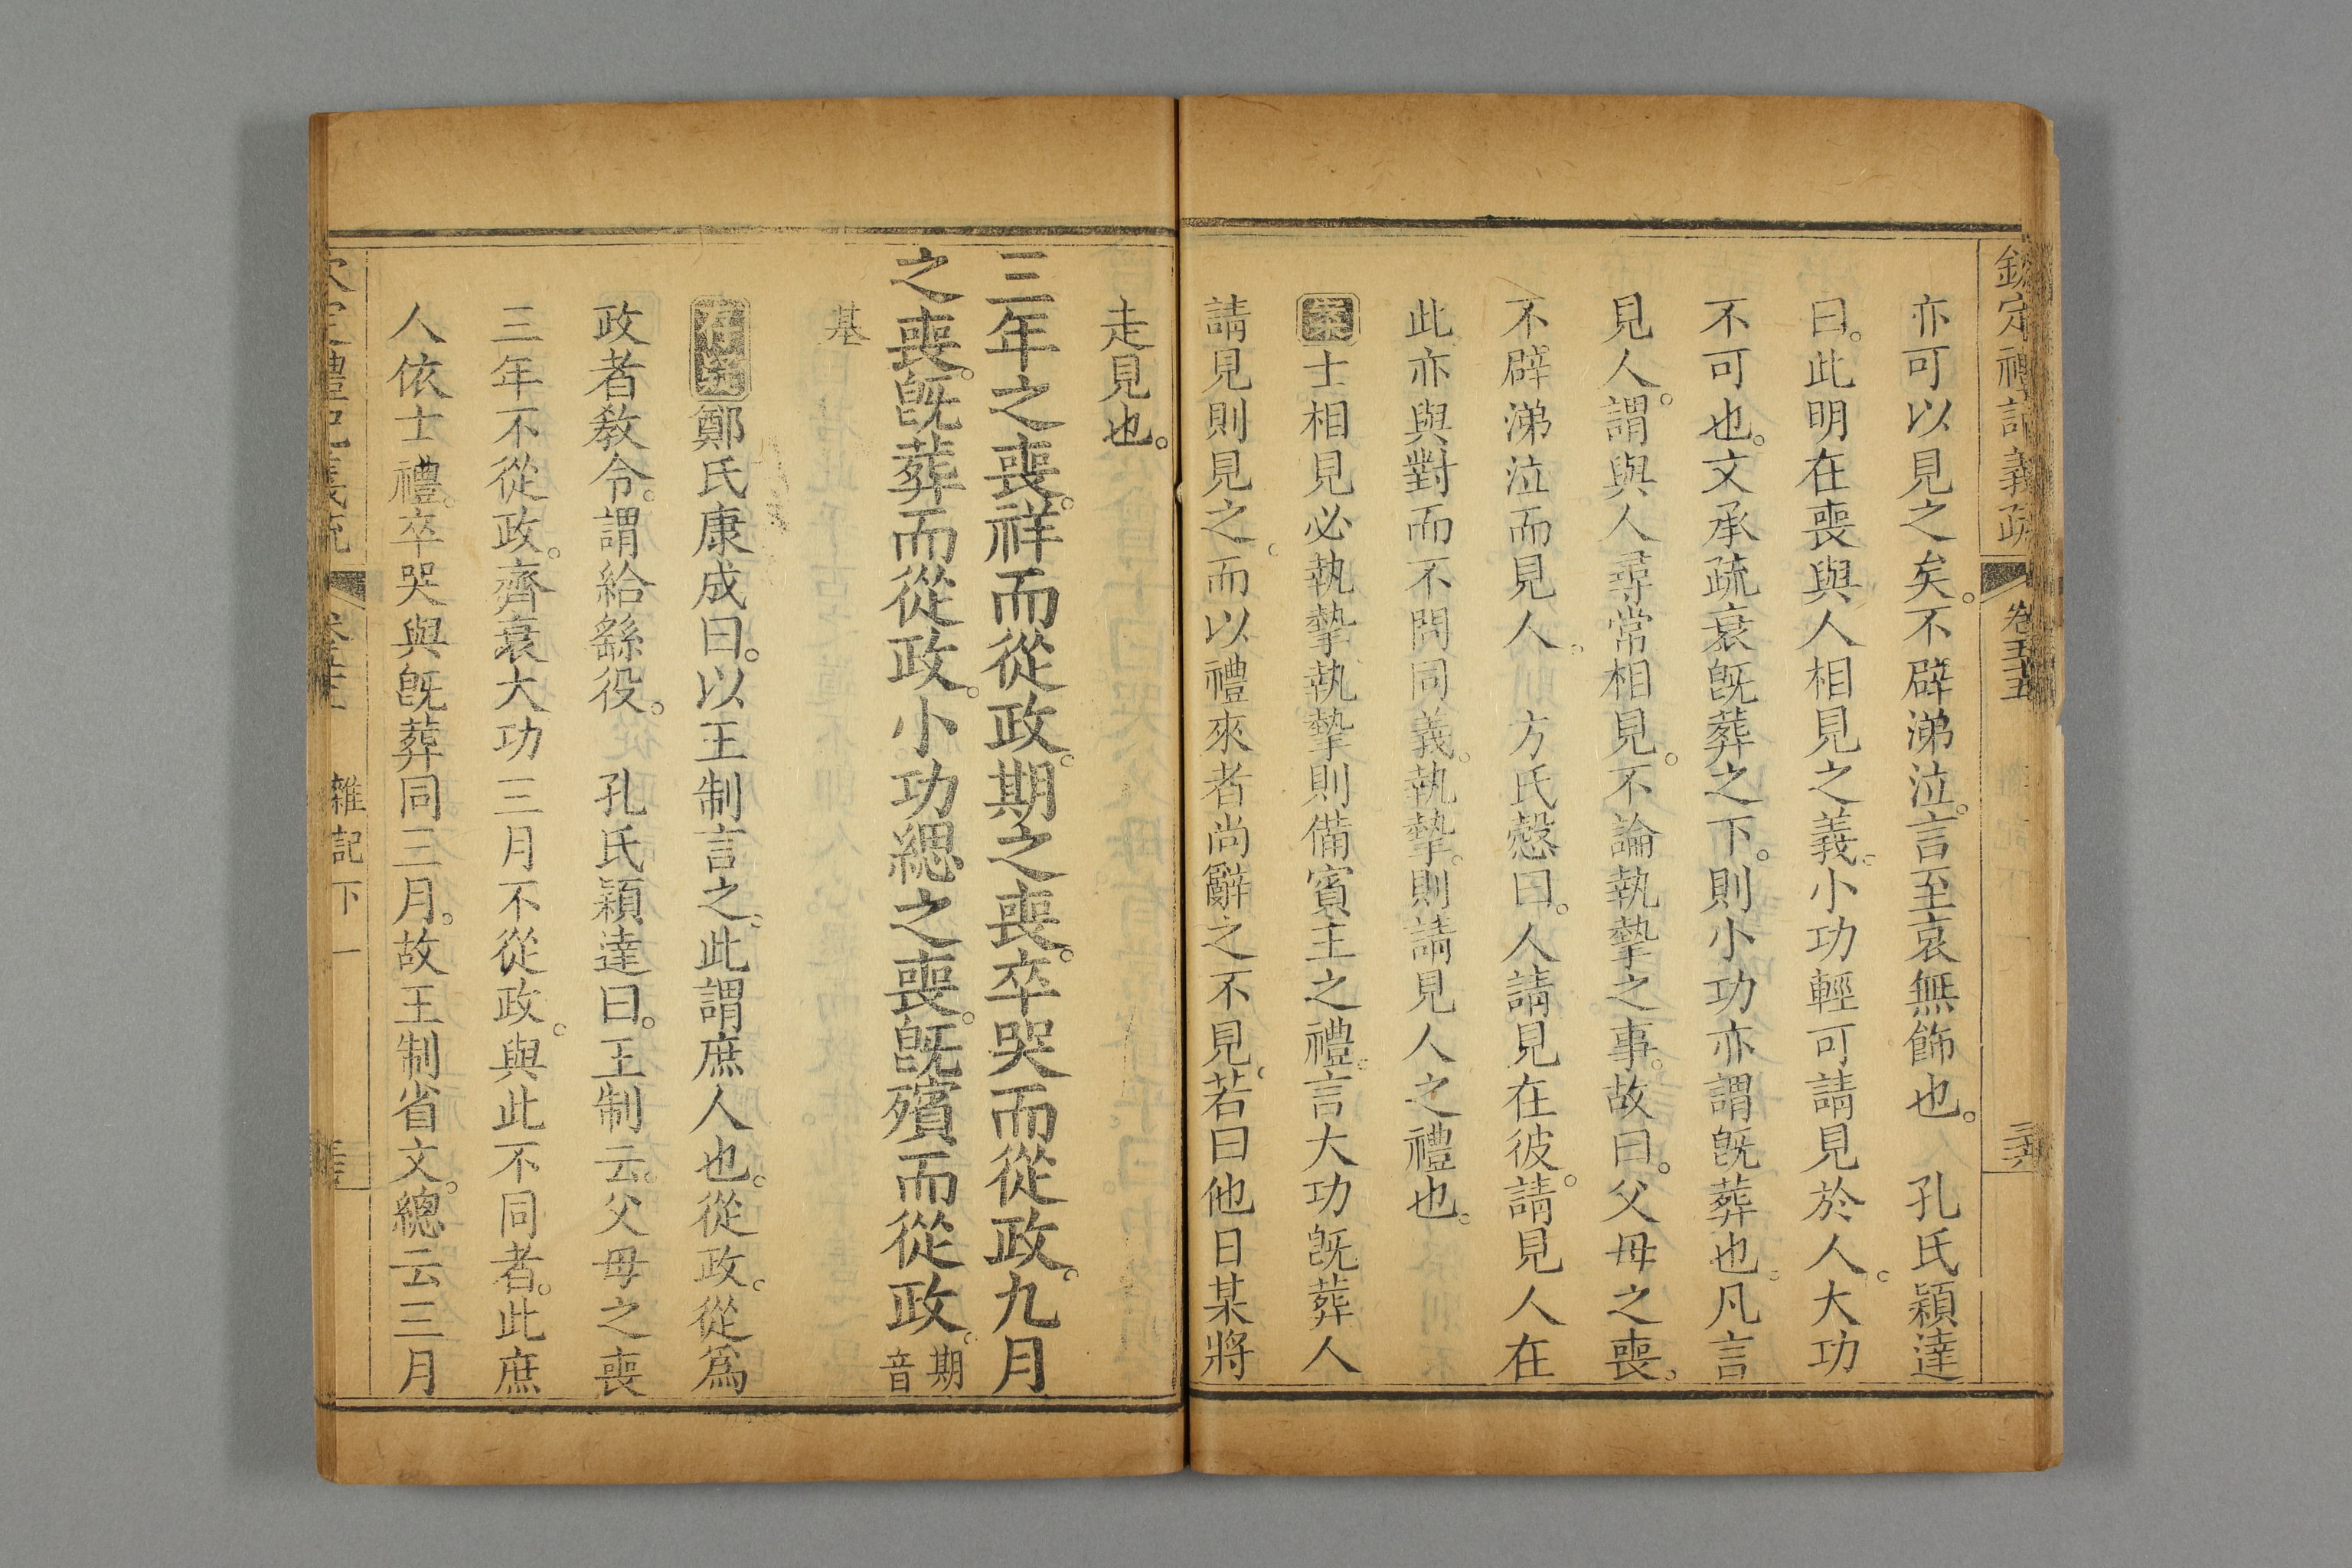 欽定禮記義疏 卷五十五 三六
亦可以見之矣。不辟涕泣。言至哀無飾也。 孔氏穎達
曰。此明在喪與人相見之義。小功輕可請見於人。大功
不可也。文承疏衰旣葬之下。則小功亦謂旣葬也。凡言
見人。謂與人尋常相見。不論執摯之事。故曰。父母之喪。
不辟涕泣而見人。 方氏慤曰。人請見在彼。請見人在
此。亦與對而不問同義。執摯。則請見人之禮也。
案士相見必執摯。執摯則備賓主之禮。言大功旣葬。人
請見則見之。而以禮來者尚辭之不見。若曰他日某將
走見也。
三年之喪。祥而從政。期之喪。卒哭而從政。九月
之喪。旣葬而從政。小功緦之喪。旣殯而從政。期音
基
存疑鄭氏康成曰。以王制言之。此謂庶人也。從政。從爲
政者教令。謂給繇役。 孔氏穎達曰。王制云。父母之喪
三年不從政。齊衰大功三月不從政。與此不同者。此庶
人依士禮。卒哭與旣葬同三月。故王制省文。總云三月
欽定禮記義疏 雜記下一